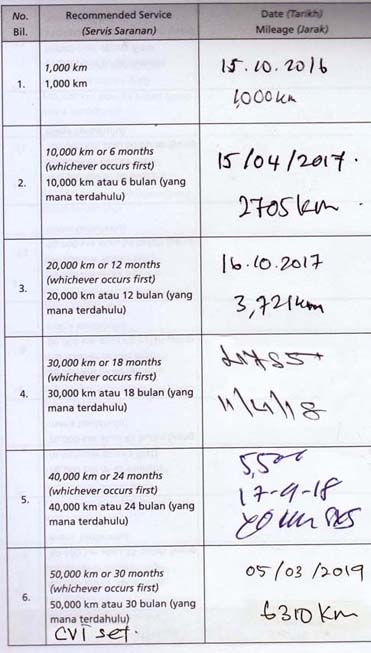 No. Recommended Service Date (Tarikh)
Bil. (Servis Saranan) Mileage (Jarak)
1. 1,000 km
1,000 km
15.10.2016
1,000 km
2. 10,000 km or 6 months
(whichever occurs first)
10,000 km atau 6 bulan (yang
mana terdahulu)
15/04/2017.
2705 km
3. 20,000 km or 12 months
(whichever occurs first)
20,000 km atau 12 bulan (yang
mana terdahulu)
16.10.2017
3,721 km
4. 30,000 km or 18 months
(whichever occurs first)
30,000 km atau 18 bulan (yang
mana terdahulu)
11/4/18
5. 40,000 km or 24 months
(whichever occurs first)
40,000 km atau 24 bulan (yang
mana terdahulu)
5,500
17-9-18
6. 50,000 km or 30 months
(whichever occurs first)
50,000 km atau 30 bulan (yang
mana terdahulu)
CVT set.
05/03/2019
6310 Km